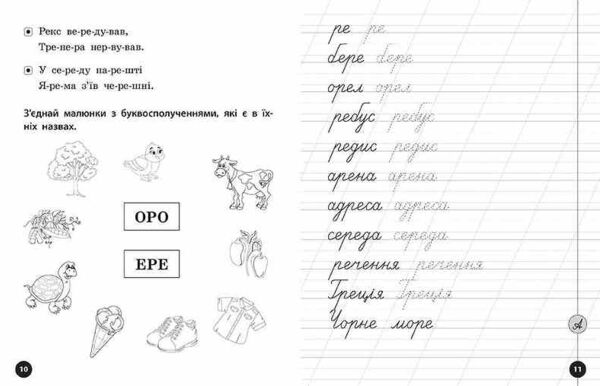 Рекс ве-ре-ду-вав,
Тре-пе-ра нер-ву-вав.
У се-ре-ду на-ре-шті
Я-ре-ма з'їв че-ре-шні.
З'єднай малюнки з буквосполученнями, які є в їх-
ніх назвах.
ОРО
ЕРЕ
10
ре ре
бере бере
орел орел
ребус ребус
редис редис
арена арена
адреса адреса
середа середа
речення речення
Греція Греція
Чорне море
А
11